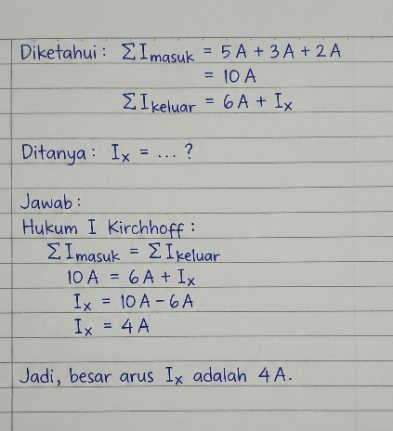 Diketahui : ΣI masuk = 5 A + 3 A + 2 A
= 10 A
ΣI keluar = 6 A + Ix
Ditanya : Ix = ... ?
Jawab :
Hukum I Kirchhoff :
ΣI masuk = ΣI keluar
10 A = 6 A + Ix
Ix = 10 A - 6 A
Ix = 4 A
Jadi, besar arus Ix adalah 4 A.